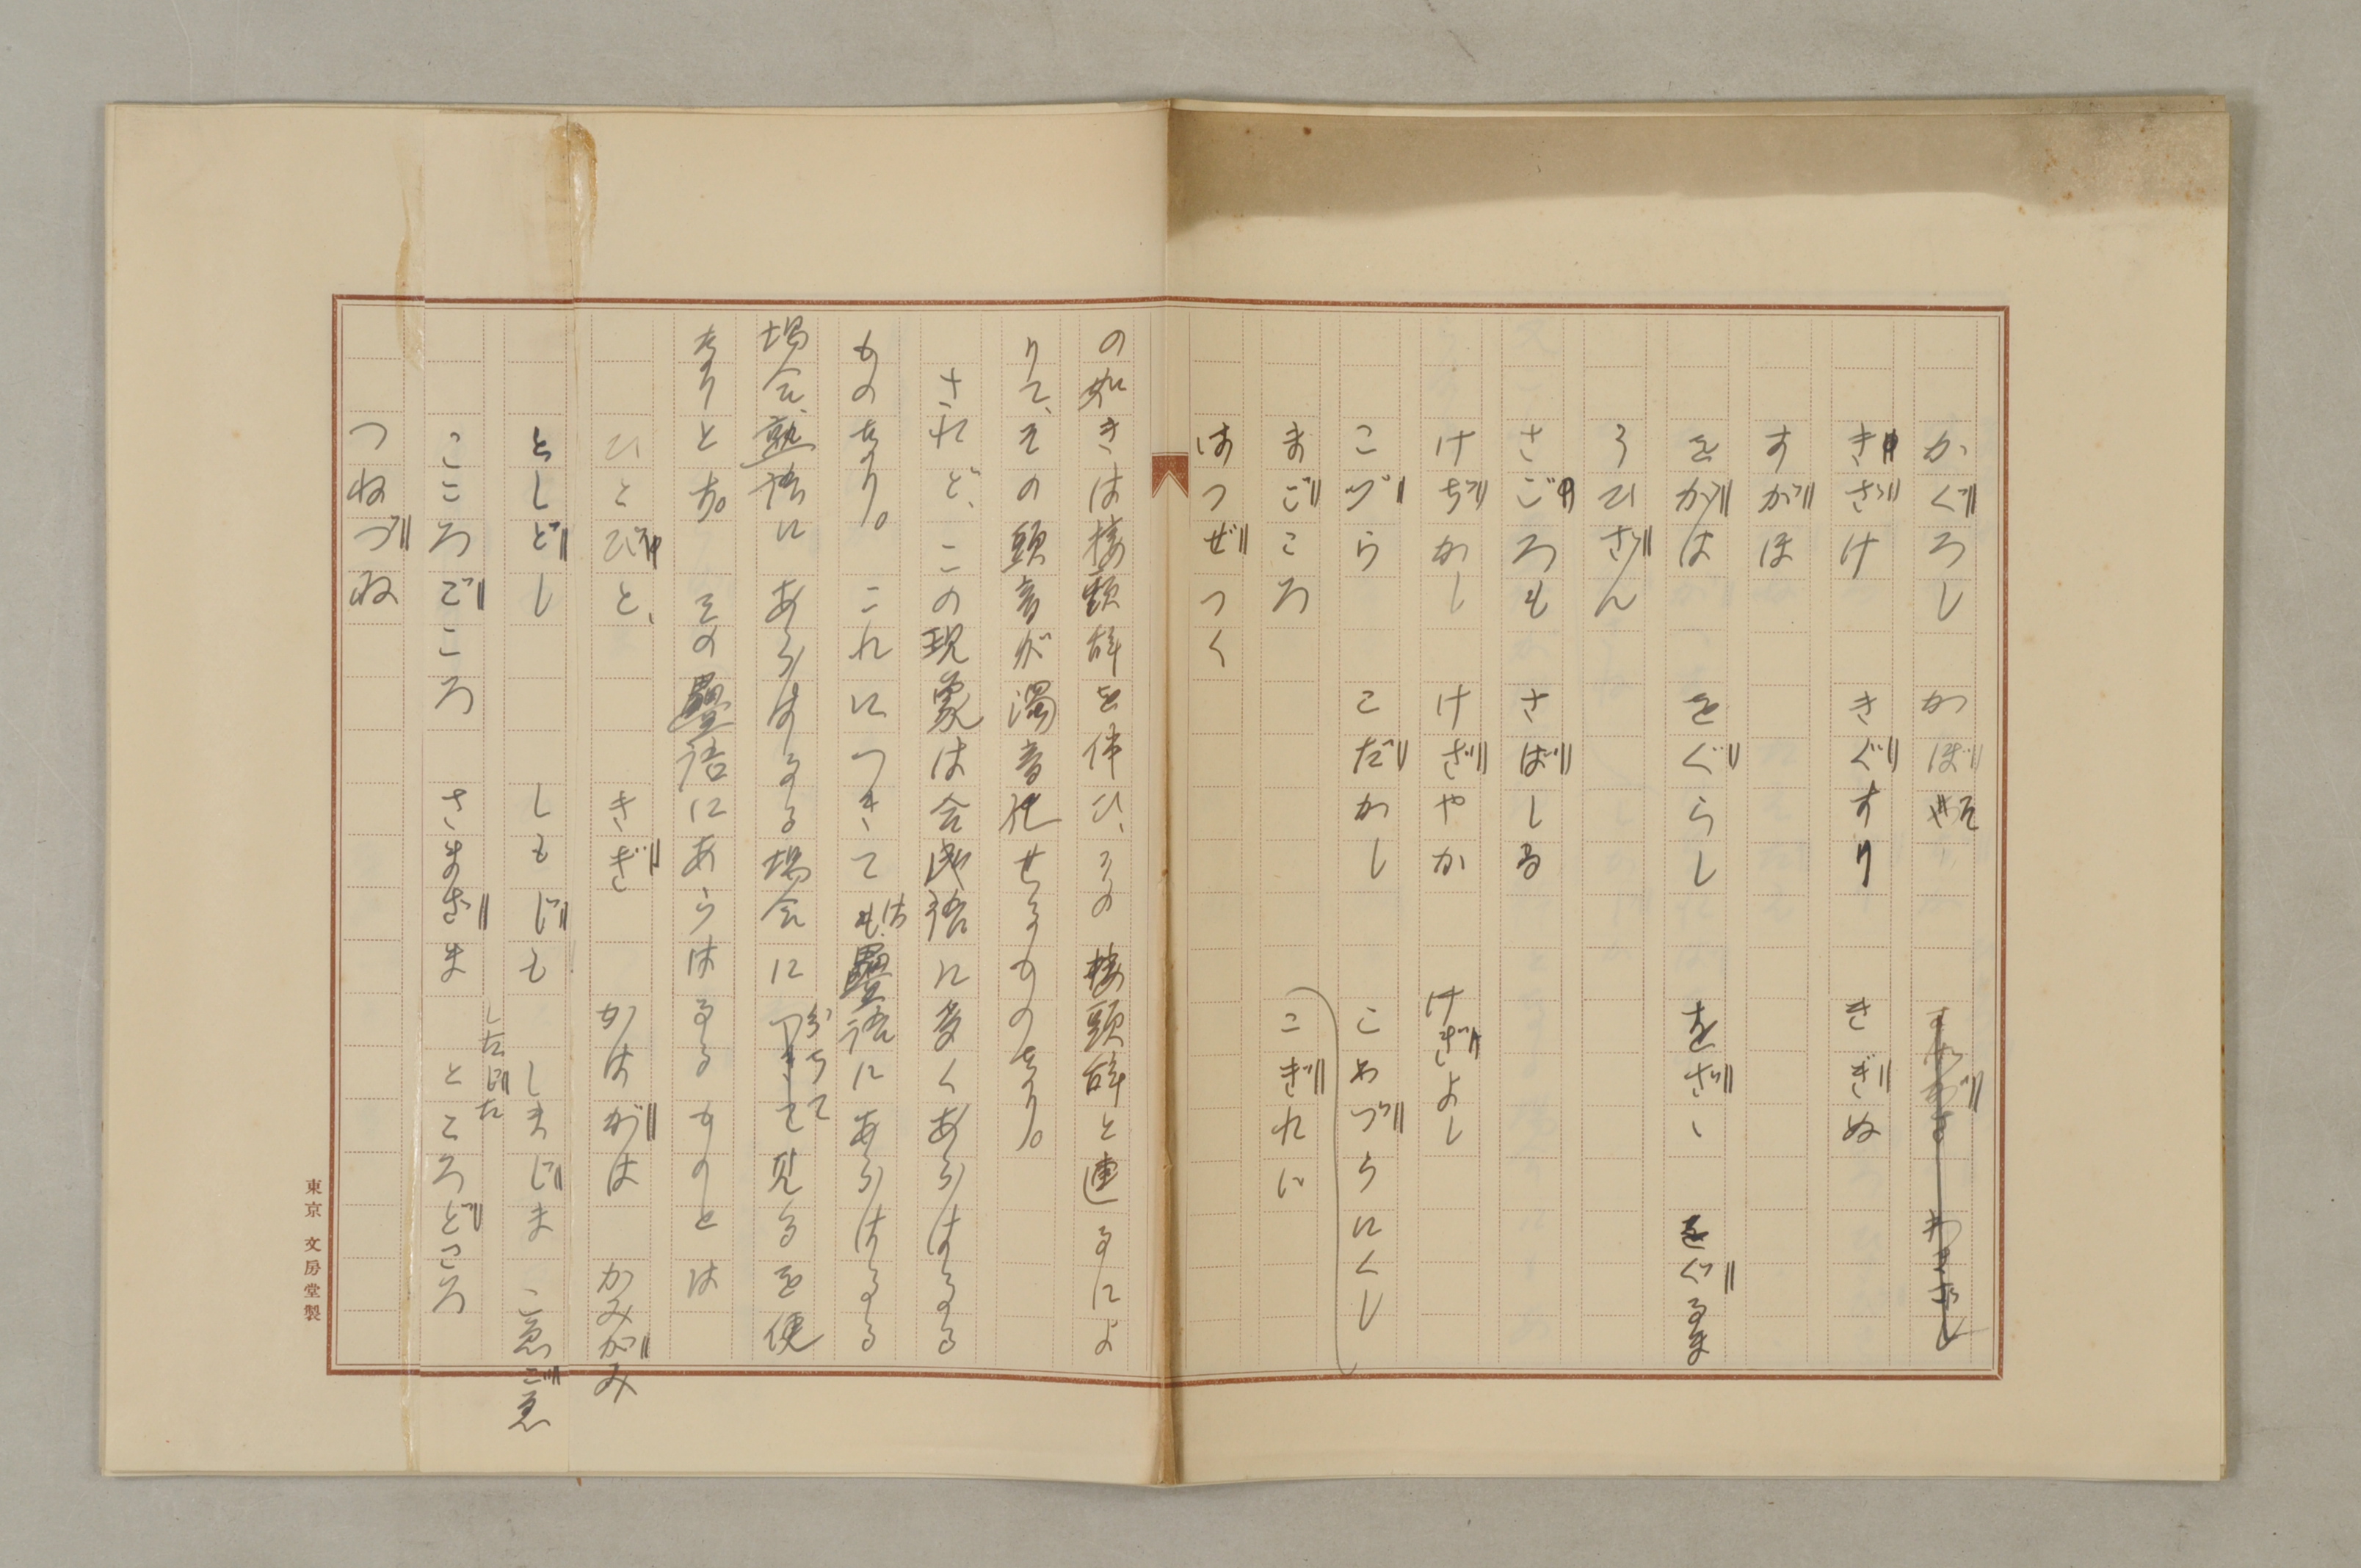 かぐろし　かぼそ
きざけ　きぐすり　きぎぬ
すがほ
をがは　をぐらし　をざゝ　をぐるま
うひざん
さごろも　さばしる
けぢかし　けざやか　けぎよし
こづら　こだかし　こわづらにくし
まごころ　こぎれに
はつぜつく
の如きは接頭辞を伴ひ、その接頭辞と連るによ
りて、その頭音が濁音化せるものなり。
されど、この現象は合成語に多くあらはるる
ものなり。これにつきては疊語にあらはるる
場合、熟語にあらはるる場合に分ちて見るを便
なりとす。その疊語にあらはるるものとは
ひとびと、　きぎ　かはがは　かみがみ
としどし　しもじも　しまじま　こゑごゑ
したじた
こころごころ　さまざま　ところどころ
つねづね
東京 文房堂製